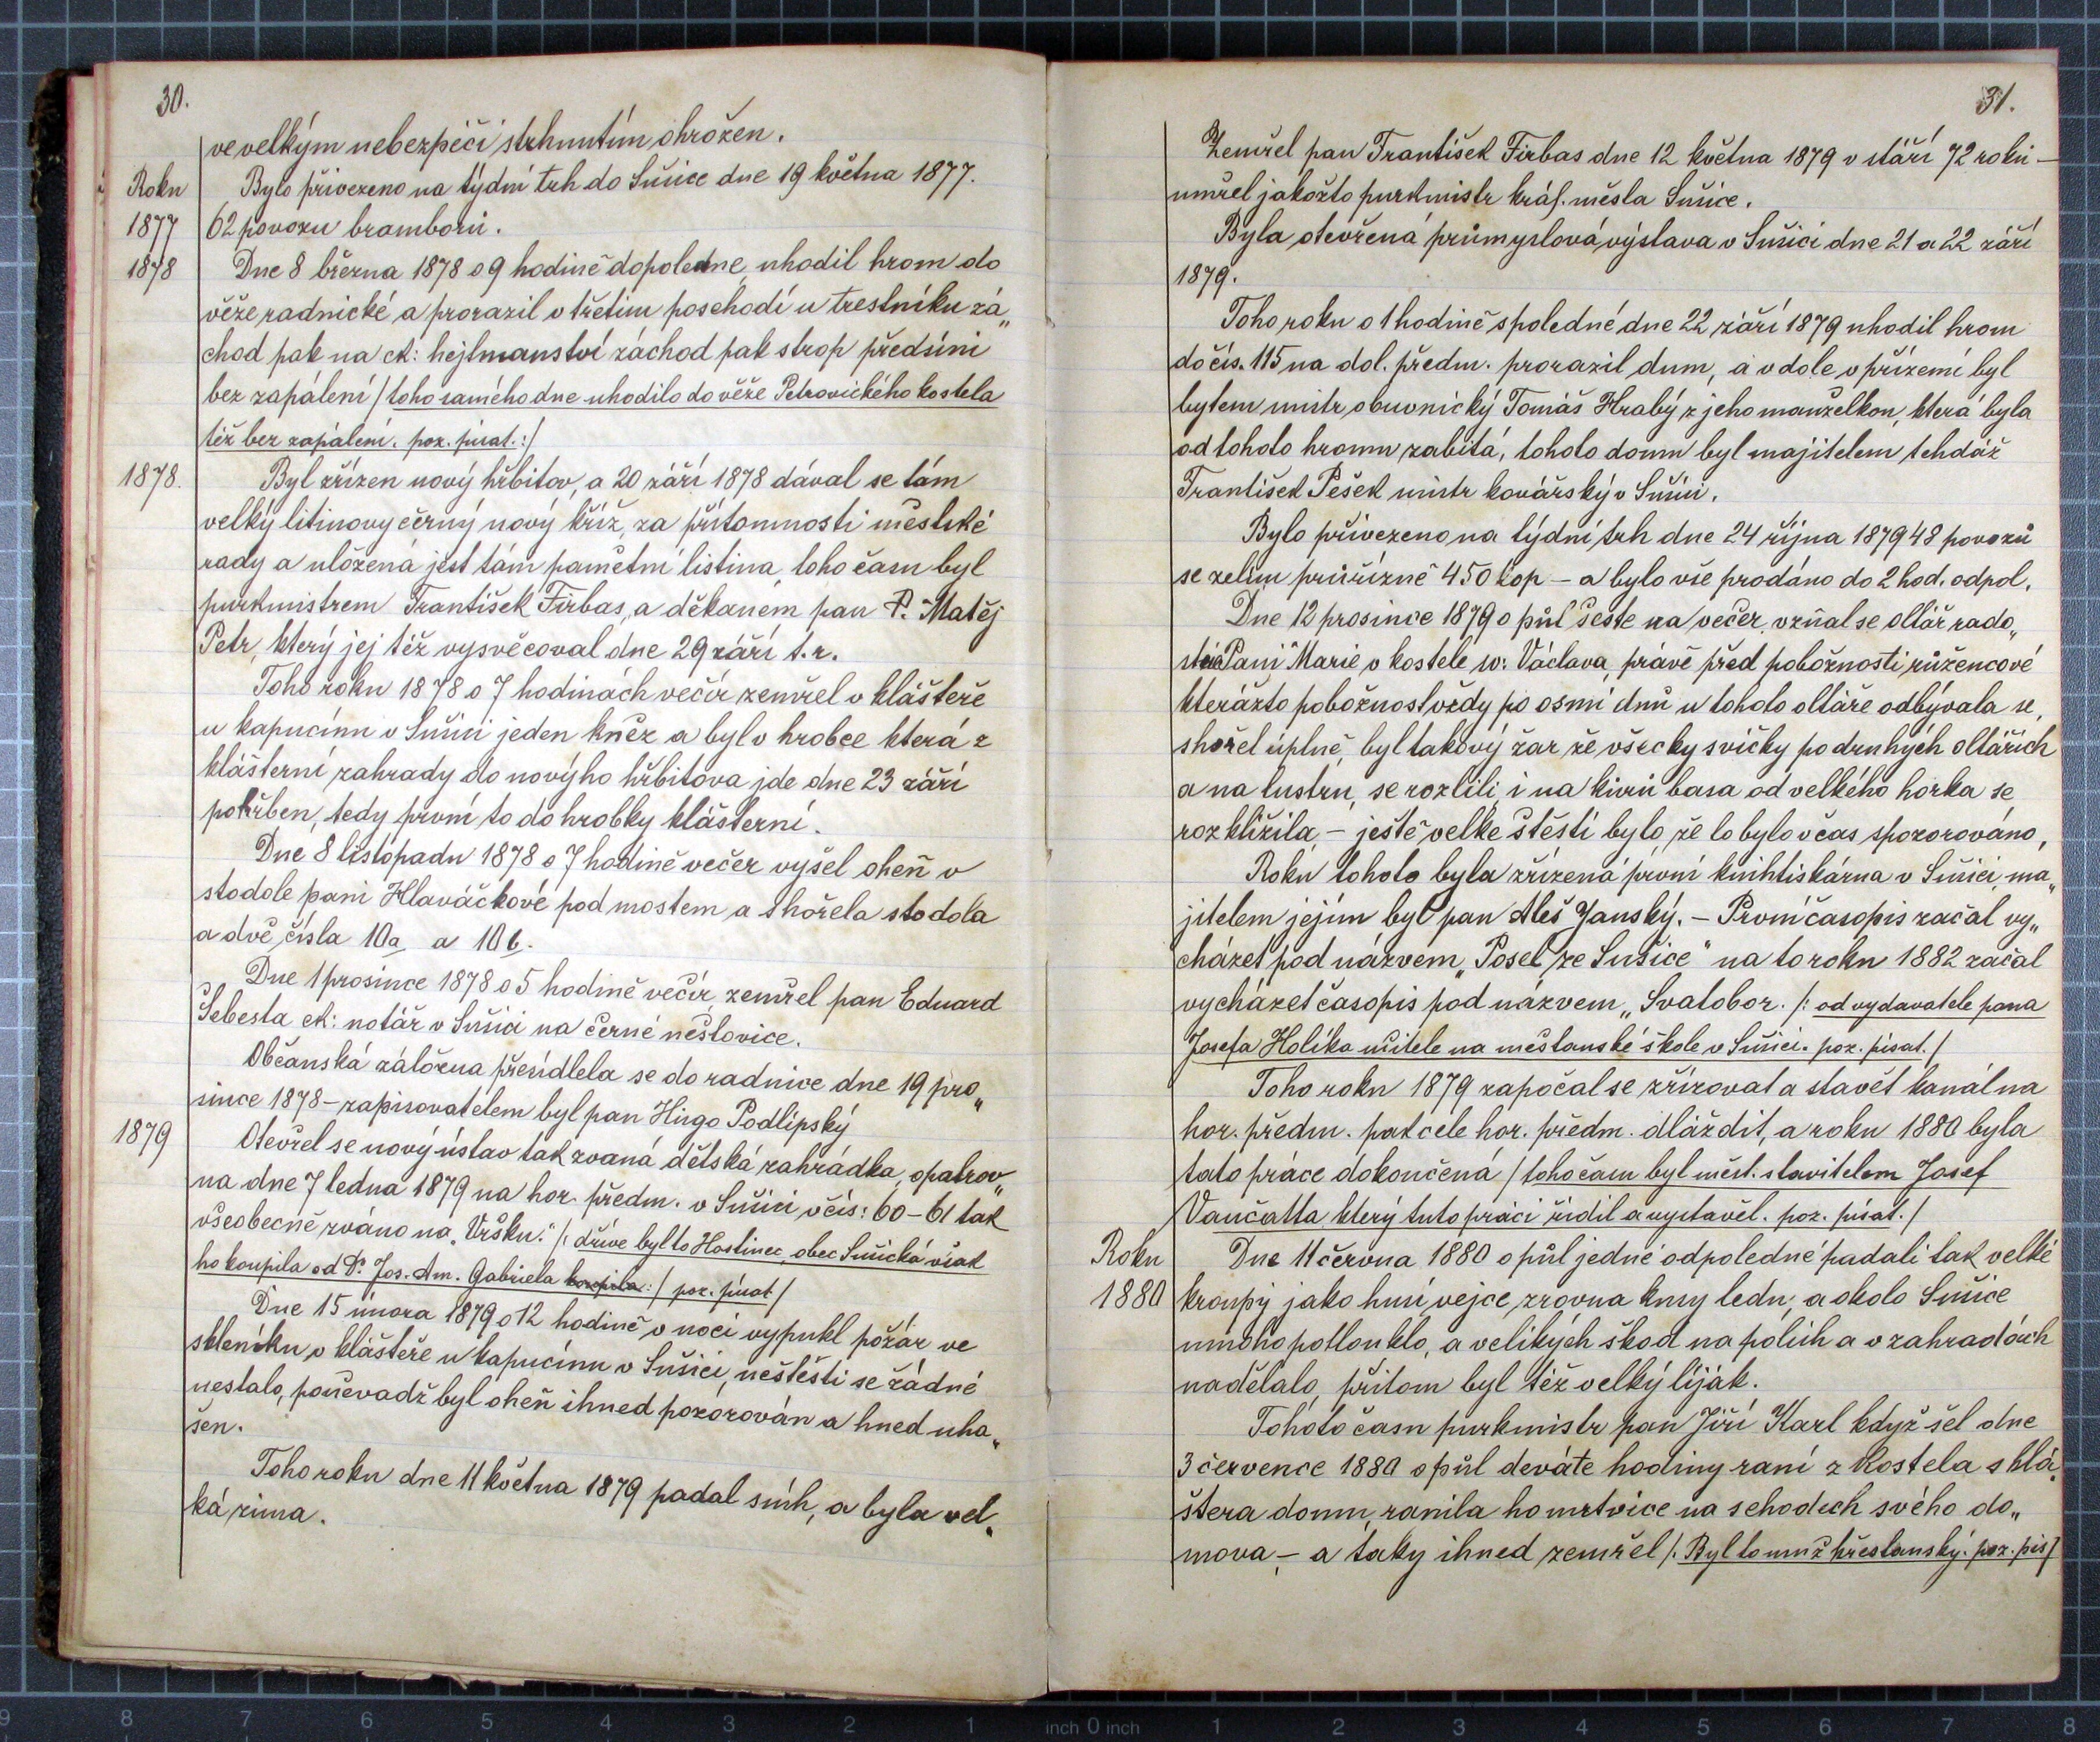 30.
ve velkým nebezpečí strhnutím ohrožen.
Roku Bylo přivezeno na týdní trh do Sušice dne 19 května 1877.
1877 62 povozu bramborů.
1878 Dne 8 března 1878 o 9 hodině dopoledne, uhodil hrom do
věže radnické a prorazil v třetím poschodí u trestníku zá„
chod pak na ck: hejtmanství záchod pak strop předsíni
bez zapálení /toho samého dne uhodilo do věže Petrovického kostela
též bez zapálení. poz. pisat.:/
1878. Byl zřízen nový hřbitov, a 20 září 1878 dával se tám
velký litinovy černý nový kříž, za přítomnosti městské
rady a uložená jest tám pamětní listina, toho času byl
purkmistrem František Firbas, a děkaném pan P. Matěj
Petr, který jej též vysvěcoval dne 29 září t.r.
Toho roku 1878 o 7 hodinách večír zemřel v klášteře
u kapucínu v Sušici jeden kněz a byl v hrobce která z
klášterní zahrady do novýho hřbitova jde dne 23 září
pohřben, tedy první to do hrobky klášterní.
Dne 8 listopadu 1878 o 7 hodině večer vyšel oheň v
stodole pani Hlaváčkové pod mostem, a shořela stodola
a dvě čísla 10a a 10b.
Dne 1 prosince 1878 o 5 hodině večír, zemřel pan Eduard
Šebesta ck: notář v Sušici na černé neštovice.
Občanská záložna přesídlela se do radnice dne 19 pro„
since 1878 – zapisovatelem byl pan Hugo Podlipský
1879 Otevřel se nový ústav tak zvaná dětská zahrádka, opatrov„
na dne 7 ledna 1879 na hor. předm. v Sušici včís: 60–61 tak
všeobecně zváno na „Vršku." /: dříve byl to Hostinec, obec Sušická však
ho koupila od Dr. Jos. Am. Gabriela koupila:/ poz. pisat/
Dne 15 února 1879 o 12 hodině v noci vypukl požár ve
skleníku v klášteře u kapucínu v Sušici, neštěsti se žádné
nestalo, poněvadž byl oheň ihned pozorován a hned uha„
šen.
Toho roku dne 11 května 1879 padal sníh, a byla vel„
ká zima.
31.
Zemřel pan František Firbas dne 12 května 1879 v stáří 72 roku –
umřel jakožto purkmistr král. města Sušice.
Byla otevřená průmyslová výstava v Sušici dne 21 a 22 září
1879.
Toho roku o 1 hodině s poledné dne 22 září 1879 uhodil hrom
do čís. 115 na dol. předm. prorazil dum, a v dole v přízemí byl
bytem mistr obuvnický Tomáš Hrabý z jeho manželkou, která byla
od tohoto hromu zabitá, tohoto domu byl majitelem tehdáž
František Pešek mistr kovářský v Sušici.
Bylo přivezeno na týdní trh dne 24 října 1879 48 povozů
se zelím průřízně 450 kop – a bylo vše prodáno do 2 hod. odpol.
Dne 12 prosince 1879 o půl šeste na večer, vzňal se oltář rado„
stná Pani Marie v kostele sv. Václava, právě před pobožnosti růžencové
kterážto pobožnost vždy po osmi dnů u tohoto oltáře odbývala se,
shořel úplně, byl takový žar že všecky svíčky po druhých oltářích
a na lustru, se rozlili, i na kůru basa od velkého horka se
rozklížila, – ještě velke štěstí bylo, že to bylo včas spozorováno,
Roku tohoto byla zřízená první knihtiskárna v Sušici, ma„
jitelem jejím byl pan Aleš Janský. – První časopis začal vy„
cházet pod názvem „Posel ze Sušice" na to roku 1882 začal
vycházet časopis pod názvem „Svatobor. /: od vydavatele pana
Josefa Holíka učitele na měšťanské škole v Sušici. poz. pisat./
Toho roku 1879 započal se zřizovat a stavět kanál na
hor. předm. pak cele hor. předm. dláždit, a roku 1880 byla
tato práce dokončená /toho času byl měst. stavitelem Josef
Vančatta, který tuto práci řídil a vystavěl. poz. písat./
Roku Dne 11 června 1880 o půl jedné odpoledné padali tak velké
1880 kroupy jako husí vejce, zrovna kusy ledu, a okolo Sušice
mnoho potlouklo, a velikých škod na polích a v zahradách
nadělalo, přitom byl též velký liják.
Tohoto času purkmistr pan Jiří Karl když šel dne
3 července 1880 o půl deváte hodiny raní z kostela s klá„
štera domu, ranila ho mrtvice na schodech svého do„
mova, – a taky ihned zemřel /: Byl to muž křesťanský. poz. pis/